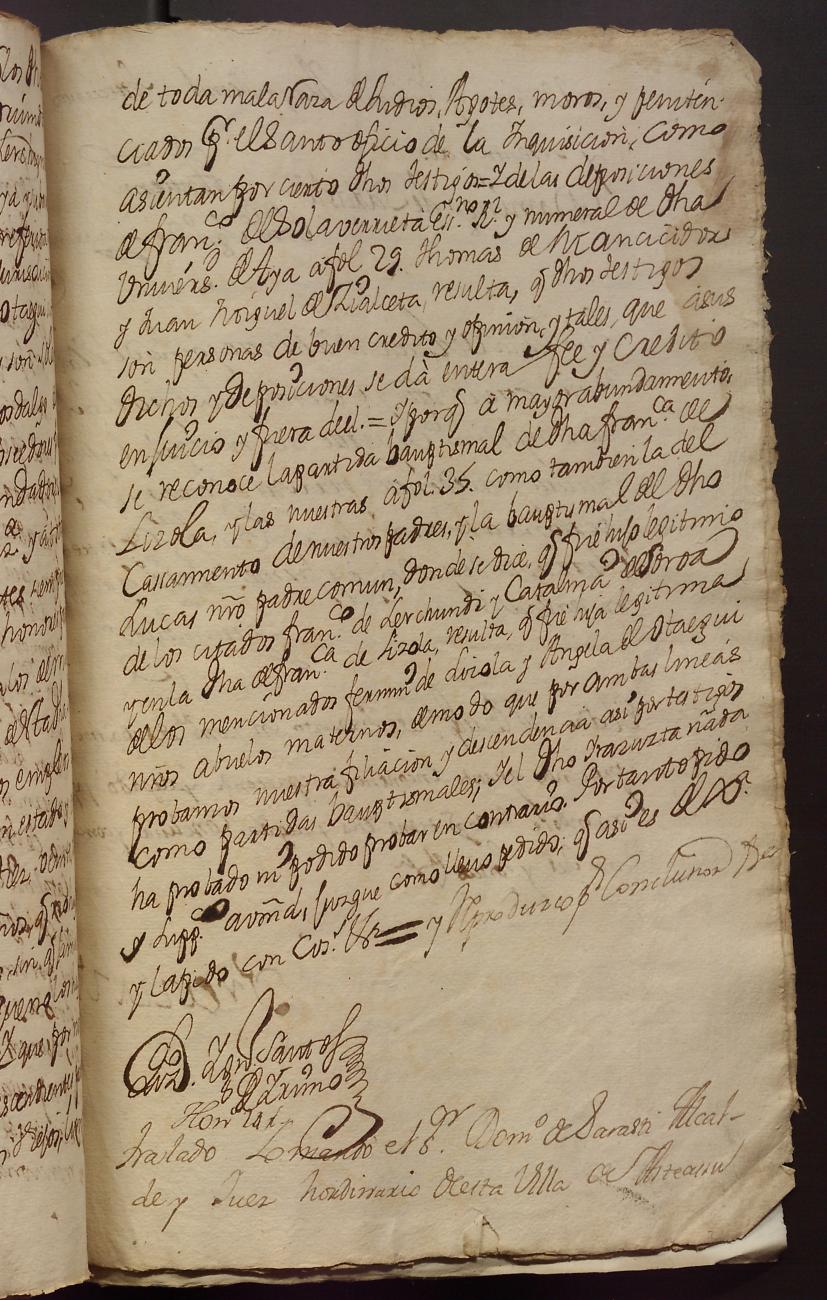 de toda mala Raza de Judios, Agotes, moros, y peniten-
ciados pr. el Santo oficio de la Inquisicion, como
asientan por cierto dhos testigos = Y de las deposiciones
de Franco. de Solaverrieta Essno. Rl. y numeral de dha
Univers. de Aya a fol 29. Thomas de Mancicidor
y Juan Miguel de Zialceta, resulta, q dhos testigos
son personas de buen credito y opinion, y tales, que asus
Dichos y Deposiciones se dà entera fee y Credito
en Juicio y fuera deel. = Y porq à mayor abundamiento
se reconoce la partida bauptismal de dha Franca. de
Lizola, y las nuestras à fol. 35. como tambien la del
Cassamiento de nuestros padres, y la bauptismal del dho
Lucas nro padre comun, donde se dice, q fue hijo legitimo
de los citados Franco. de Lerchundi y Catalina de Soroa
y en la dha de Franca. de Lizola, resulta, q fue hija legitima
de los mencionados fermin de Lizola y Angela de Otaegui
nros abuelos maternos, de modo que por ambas lineas
probamos nuestra filiacion y descendencia asi por testigos
como partidas bauptismales; Y el dho Irazuzta nada
ha probado ni podido probar en contrario. Por tanto pido
y Suppco. a vmd, juzgue como llevo pedido, q asi es de Xa.
y la pido con Cos. &a = y Reproduzco pr. Conclusion
Santos
traslado Lo mando el Sr. Domo. de Sarasti Alcal-
de y Juez hordinario de esta Villa de Asteasu